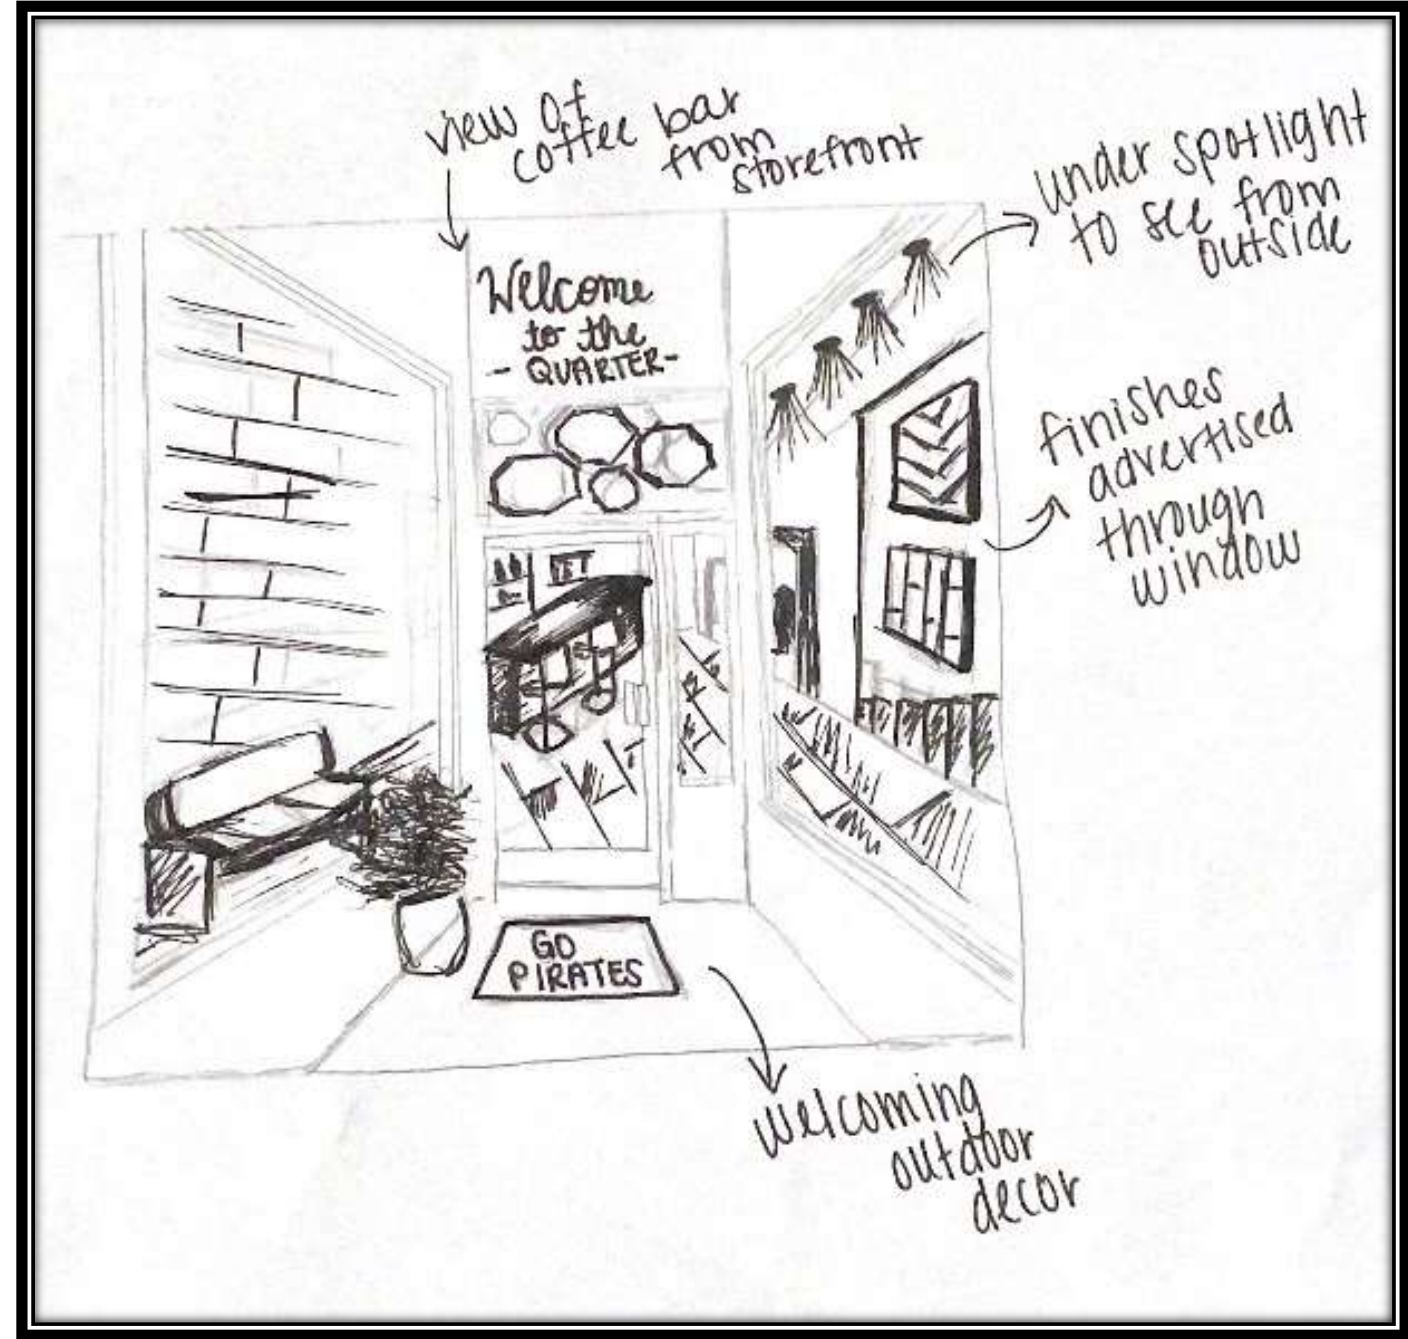 view of
coffee bar
from
storefront
under spotlight
to see from
outside
Welcome
to the
- QUARTER-
finishes
advertised
through
window
GO
PIRATES
welcoming
outdoor
decor